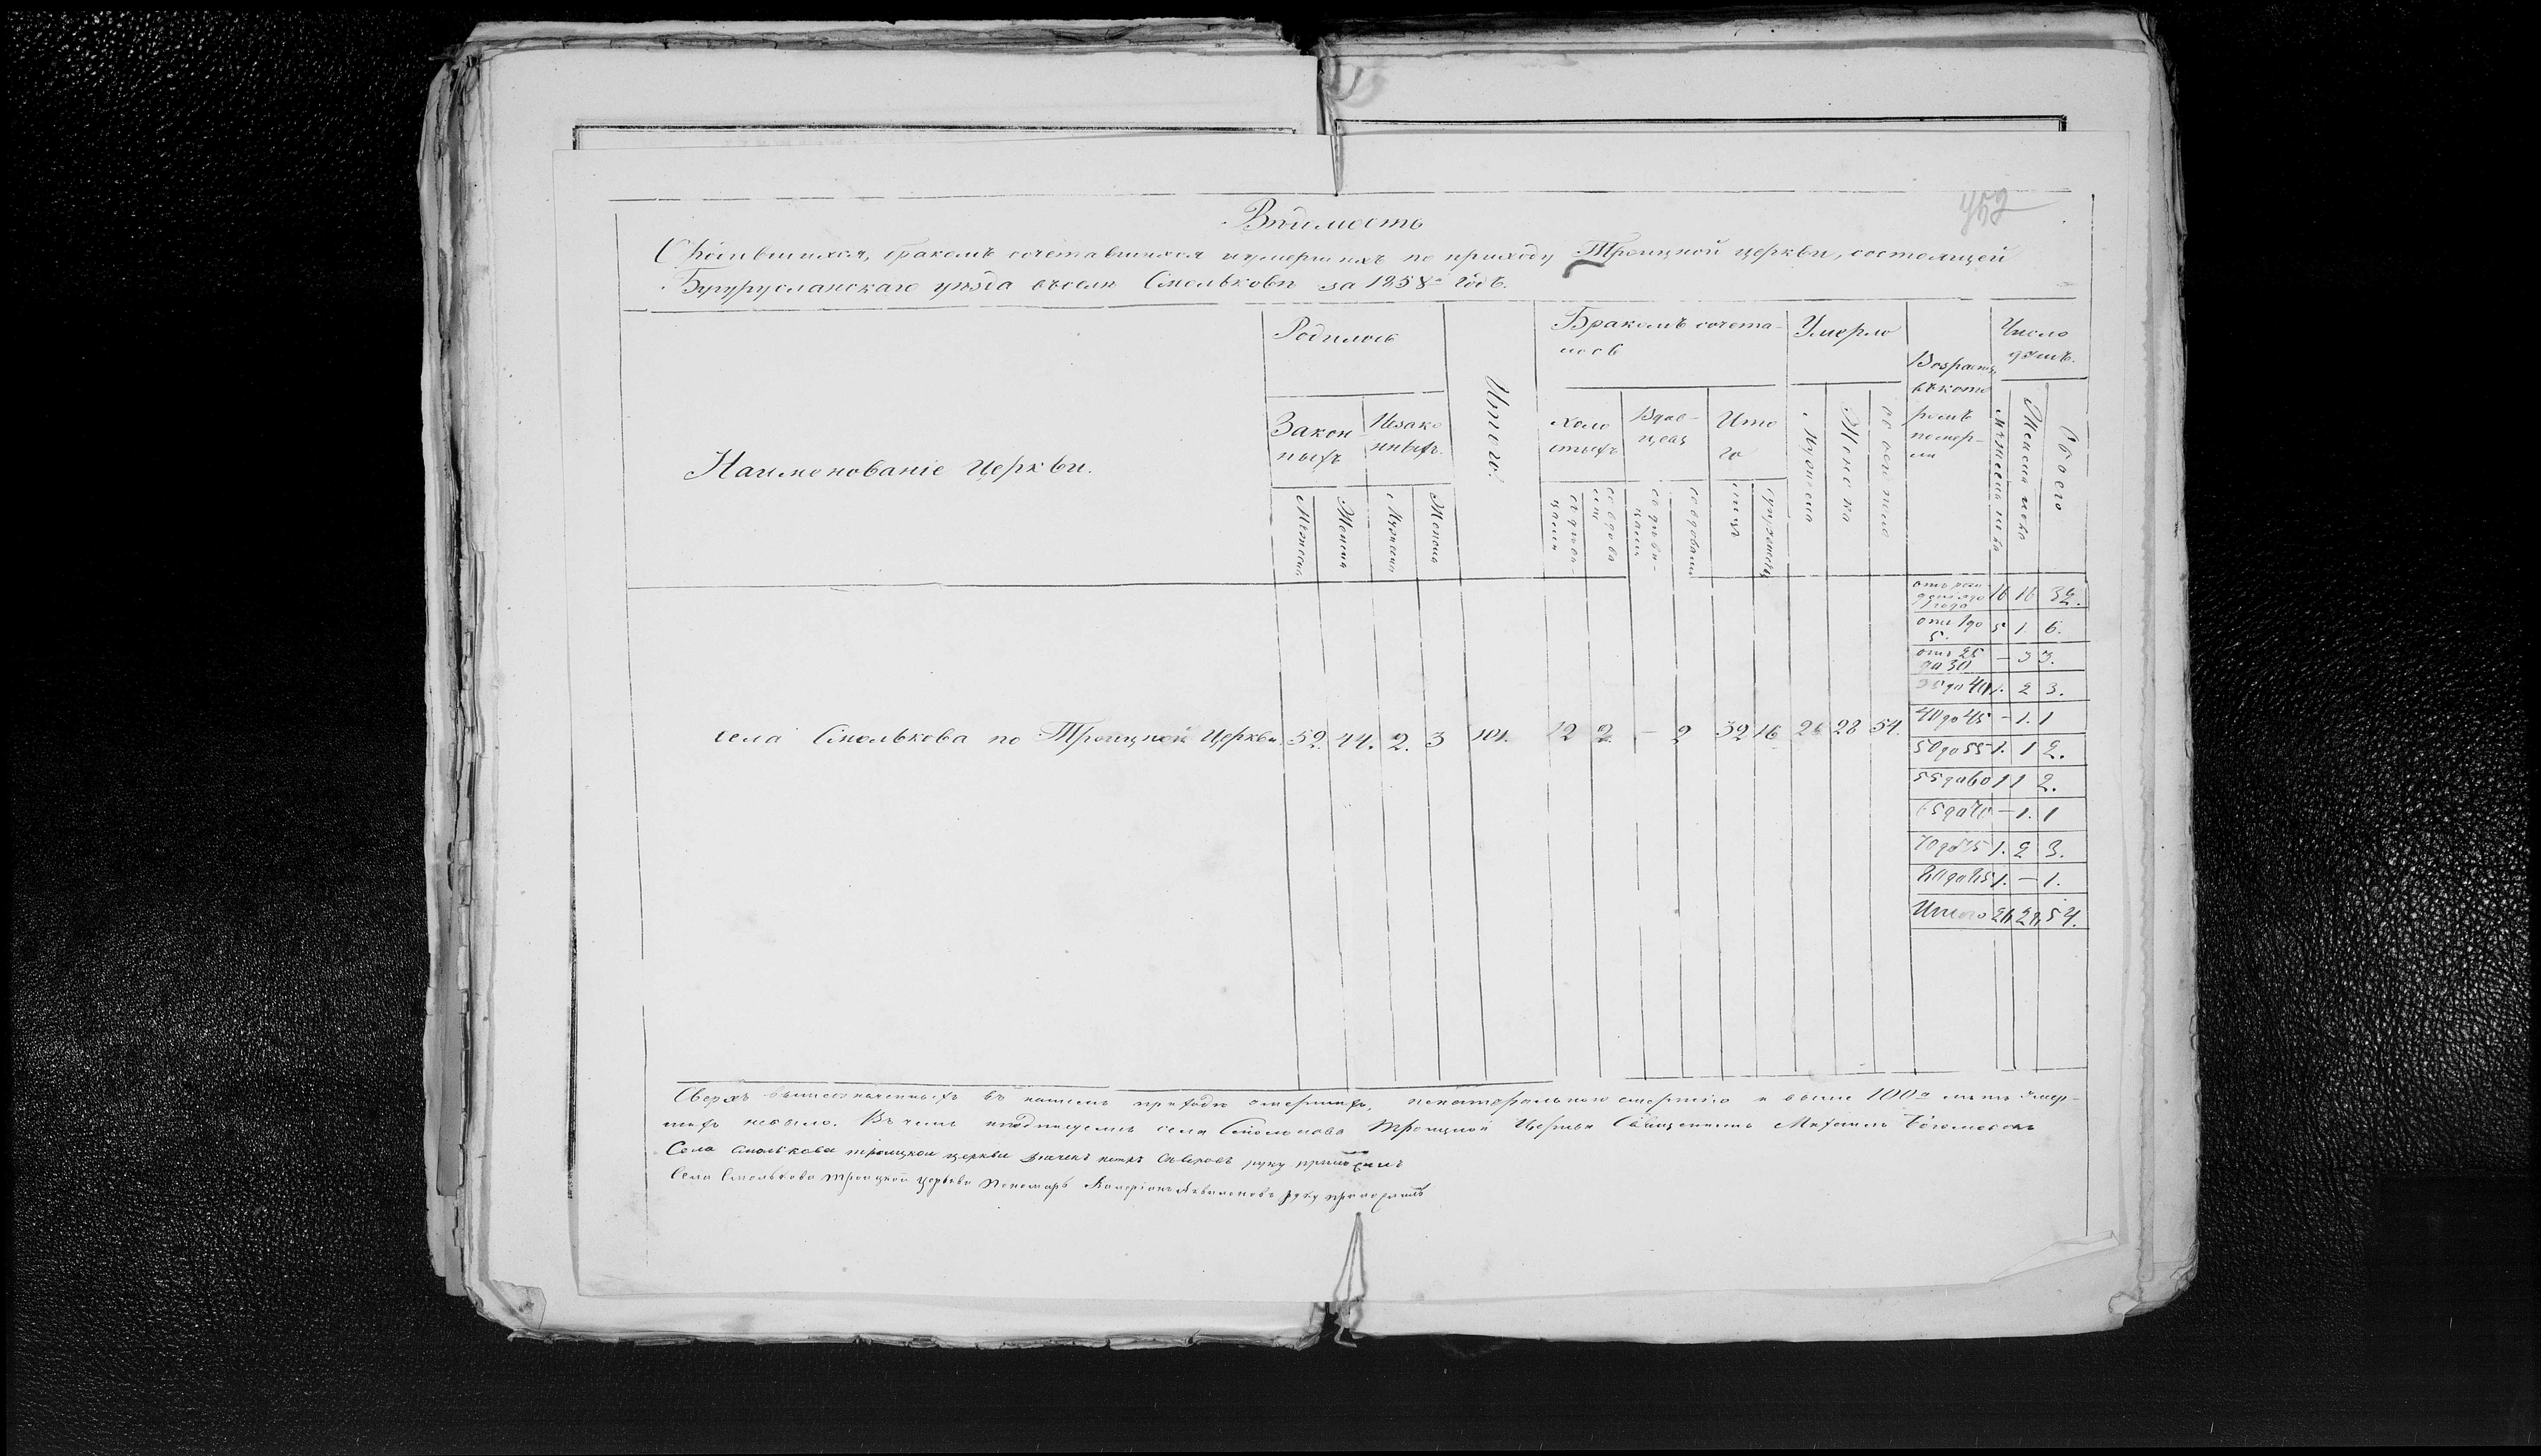 452
Вѣдомость
О родившихся, бракомъ сочетавшихся и умершихъ по приходу Троицкой церкви, состоящей
Бугурусланскаго уѣзда въ селѣ Смольковѣ за 1858й годъ.
Наименованіе Церкви.
Родилось
Закон-
ныхъ
Незако
нныхъ.
Мужеска
Женска
Мужеска
Женска
Итого.
Бракомъ сочета-
лось
Холо
стыхъ
Вдов-
цевъ
Ито
го
съ дѣви-
цами
со вдова
ми
съ дѣви-
цами
со вдовами
лицъ
супружествъ
Умерло
Мужеска
Женска
обоего пола
Возрастъ,
въ кото
ромъ
помер-
ли
Число
душъ.
Мужеска пола
Женска пола
Обоего
села Смолькова по Троицкой Церкви. 52. 44. 2. 3 101. 12 2 — 2 32 16 26 28 54.
отъ рож
денія до
1 года 16 16 32.
отъ 1 до
5. 5 1. 6.
отъ 25
до 30 — 3 3.
35 до 40 1. 2 3.
40 до 45 — 1. 1
50 до 55 1. 1 2.
55 до 60 1 1 2.
65 до 70 — 1. 1
70 до 75 1. 2 3.
80 до 85 1. — 1.
Итого 26 28 54.
Сверхъ вышеозначенныхъ въ нашемъ приходѣ умершихъ, ненатуральною смертію и выше 100а лѣтъ умер-
шихъ небыло. Въ чемъ и подписуемся села Смолькова Троицкой Церкви Священникъ Михаилъ
Села Смолькова троицкой церкви дьячекъ петръ руку приложилъ
Села Смолькова троицкой церкви Пономарь руку приложилъ